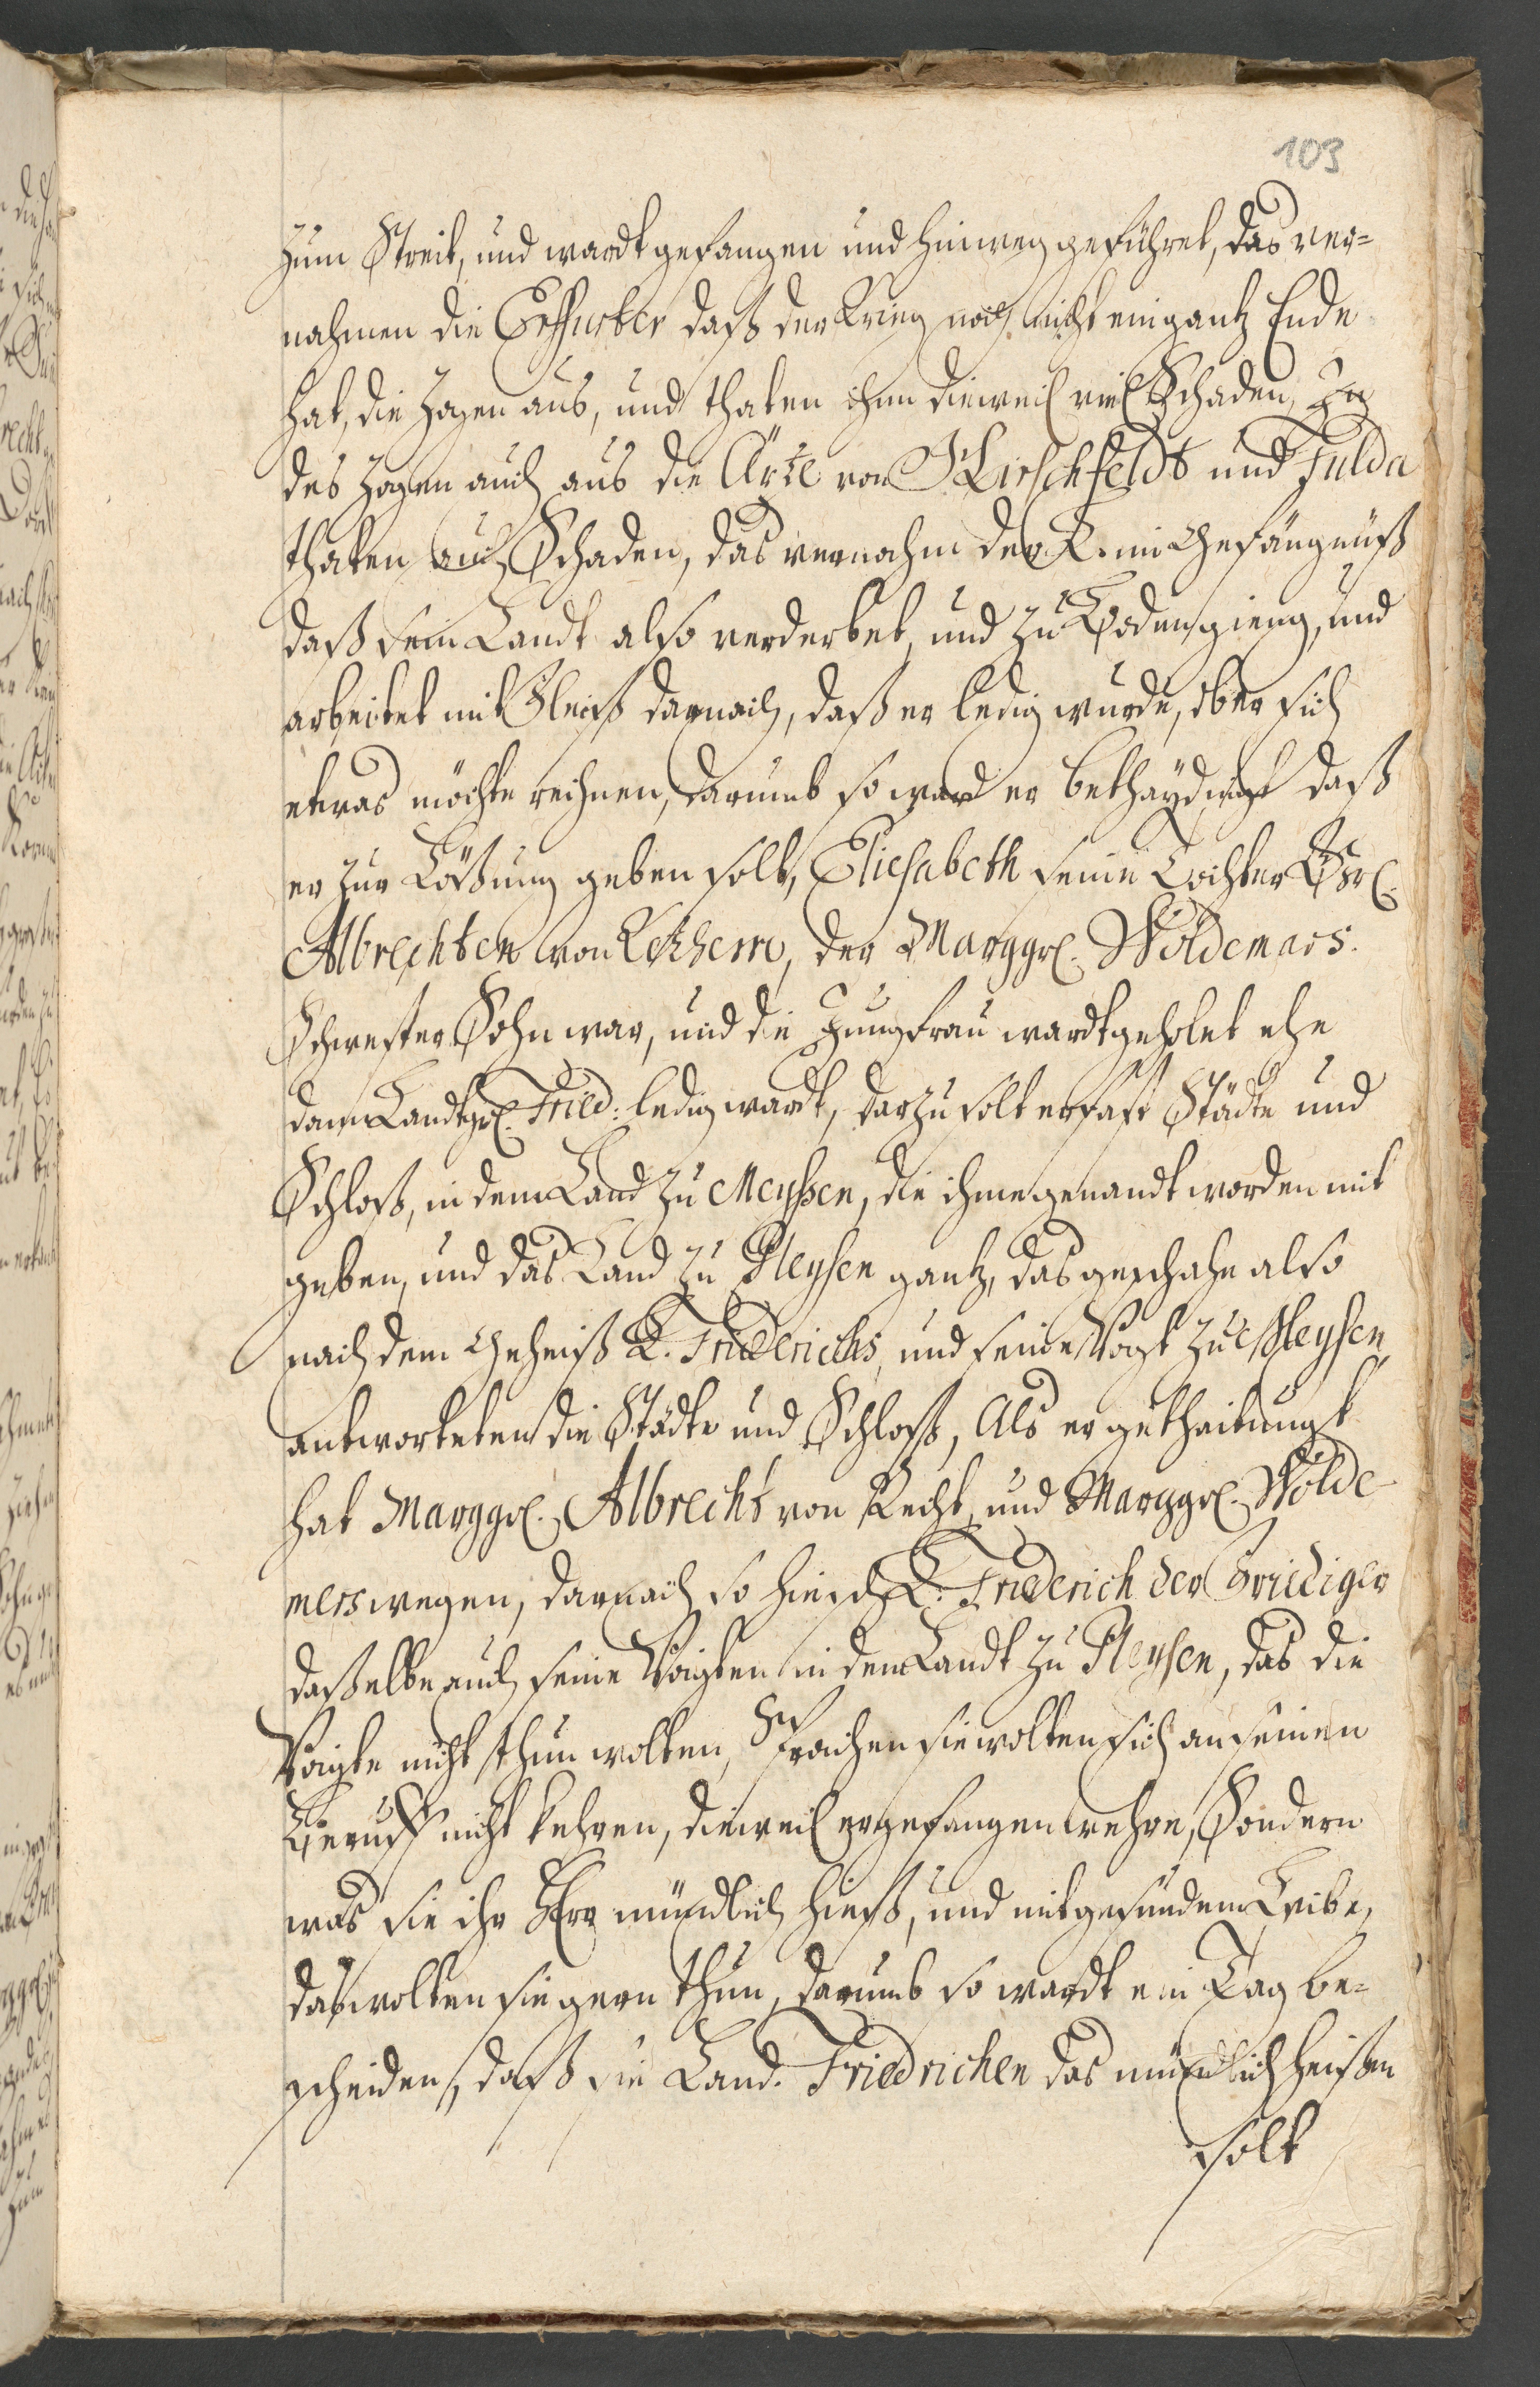 103
zum Streit, und wardt gefangen und hinweg geführet, das ver=
nahmen die Erffurter daß der Krieg noch nicht ein gantz Ende
hat, die zogen aus, und thaten ihm dieweil viel Schaden, In
des zogen auch aus die Äpte von Hirschfeldt und Fulda
thaten auch Schaden, das vernahm der L. im Gefängnüß
daß sein Landt also verderbet, und zu Boden gieng, und
arbeitet mit Fleiß darnach, daß er ledig wurde, ob er sich
etwas möchte rechnen, darumb so ward er bethäydingt daß
er zur Lößung geben solt, Eliesabeth seine Tochter
Albrechten von Kethern, der Marggr. Woldemars.
Schwester Sohn war, und die Jungfrau wardt geholet ehe
dann Landtgr. Fried: ledig wardt, darzu solt er fast Städte und
Schloß, in dem Land zu Meyßen, die ihme genandt worden mit
geben, und das Land zu Pleysen gantz, das geschahe also
nach dem Geheiß L. Friderichs, und seine Vogt zu Meysen,
antworteten die Städte und Schloß, Als er gethaitungt
hat Marggr. Albrecht von Recht, und Marggr. Wolde-
mers wegen, darnach so hiesch L. Friderich der Freidiger
daßelbe auch seine Voigten in dem Landt zu Pleysen, das die
Voigte nicht thun wolten, Sprachen sie wolten sich an seinen
Beruff nicht kehren, dieweil er gefangen wehre, Sondern
was sie ihr Herr mündlich hieß, und mit gesundem Leibe,
das wolten sie gern thun, darumb so wardt ein Tag be=
scheiden, daß sie Land. Friedrichen das mündlich heißen
solt